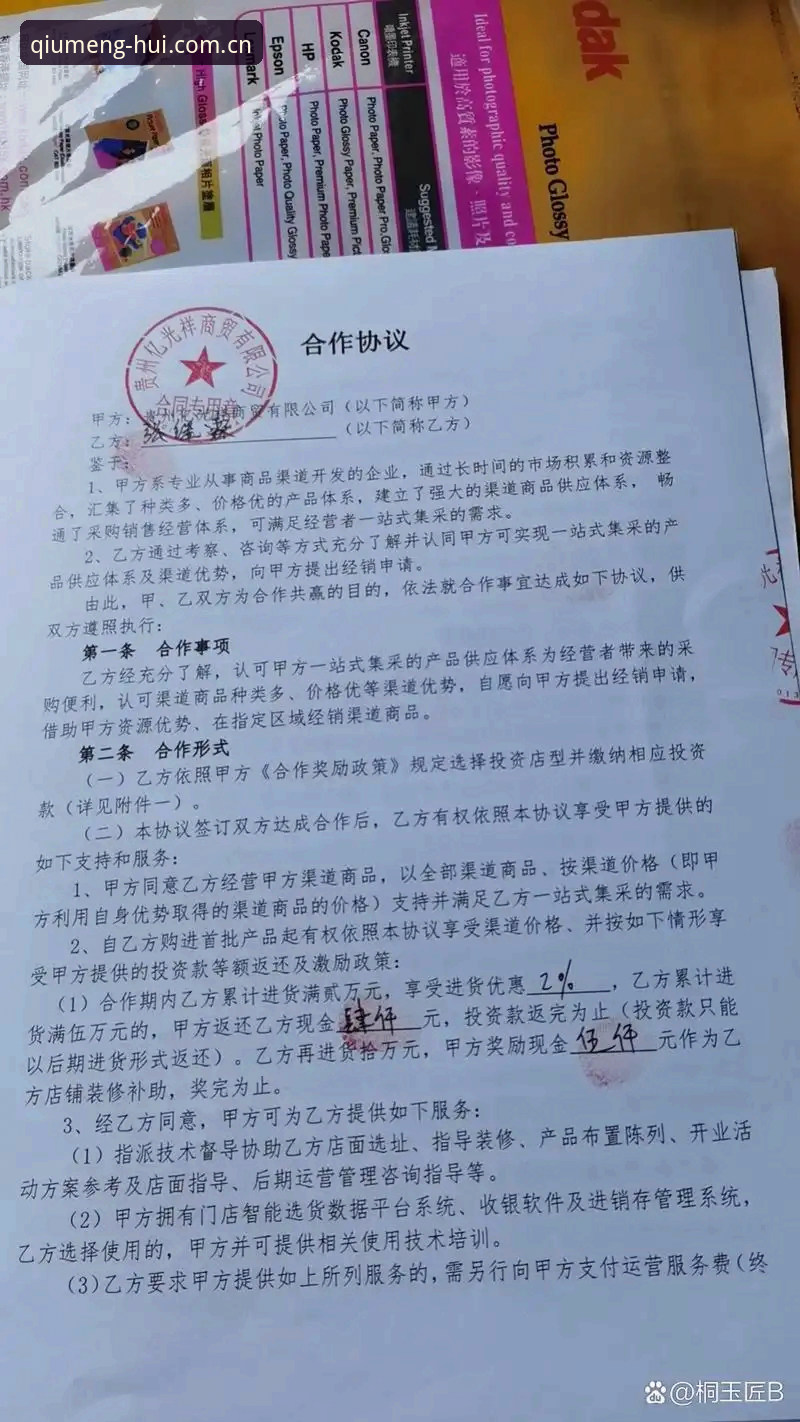 qiumeng-hui.com.cn
dak
Photo Glossy
Ideal for photographic quality and co
適用於高質素的影像、照片及
Inkjet Printer
噴墨印表機
Suggested M
Canon
Photo Paper, Photo Paper Pro, Glo
Kodak
Photo Glossy Paper, Premium Pict
HP
Photo Paper, Premium Photo Pape
Epson
Photo Paper, Photo Quality Glossy
mark
Photo Paper
High Gloss
合作协议
贵州亿光祥商贸有限公司
合同专用章
甲方：贵州亿光祥商贸有限公司（以下简称甲方）
乙方：（以下简称乙方）
鉴于：
1、甲方系专业从事商品渠道开发的企业，通过长时间的市场积累和资源整
合，汇集了种类多、价格优的产品体系，建立了强大的渠道商品供应体系，畅
通了采购销售经营体系，可满足经营者一站式集采的需求。
2、乙方通过考察、咨询等方式充分了解并认同甲方可实现一站式集采的产
品供应体系及渠道优势，向甲方提出经销申请。
由此，甲、乙双方为合作共赢的目的，依法就合作事宜达成如下协议，供
双方遵照执行：
第一条 合作事项
乙方经充分了解，认可甲方一站式集采的产品供应体系为经营者带来的采
购便利，认可渠道商品种类多、价格优等渠道优势，自愿向甲方提出经销申请，
借助甲方资源优势、在指定区域经销渠道商品。
第二条 合作形式
（一）乙方依照甲方《合作奖励政策》规定选择投资店型并缴纳相应投资
款（详见附件一）。
（二）本协议签订双方达成合作后，乙方有权依照本协议享受甲方提供的
如下支持和服务：
1、甲方同意乙方经营甲方渠道商品，以全部渠道商品、按渠道价格（即甲
方利用自身优势取得的渠道商品的价格）支持并满足乙方一站式集采的需求。
2、自乙方购进首批产品起有权依照本协议享受渠道价格、并按如下情形享
受甲方提供的投资款等额返还及激励政策：
（1）合作期内乙方累计进货满贰万元，享受进货优惠2%，乙方累计进
货满伍万元的，甲方返还乙方现金肆仟元，投资款返完为止（投资款只能
以后期进货形式返还）。乙方再进货拾万元，甲方奖励现金伍仟元作为乙
方店铺装修补助，奖完为止。
3、经乙方同意，甲方可为乙方提供如下服务：
（1）指派技术督导协助乙方店面选址、指导装修、产品布置陈列、开业活
动方案参考及店面指导、后期运营管理咨询指导等。
（2）甲方拥有门店智能选货数据平台系统、收银软件及进销存管理系统，
乙方选择使用的，甲方并可提供相关使用技术培训。
（3）乙方要求甲方提供如上所列服务的，需另行向甲方支付运营服务费（终
@桐玉匠B